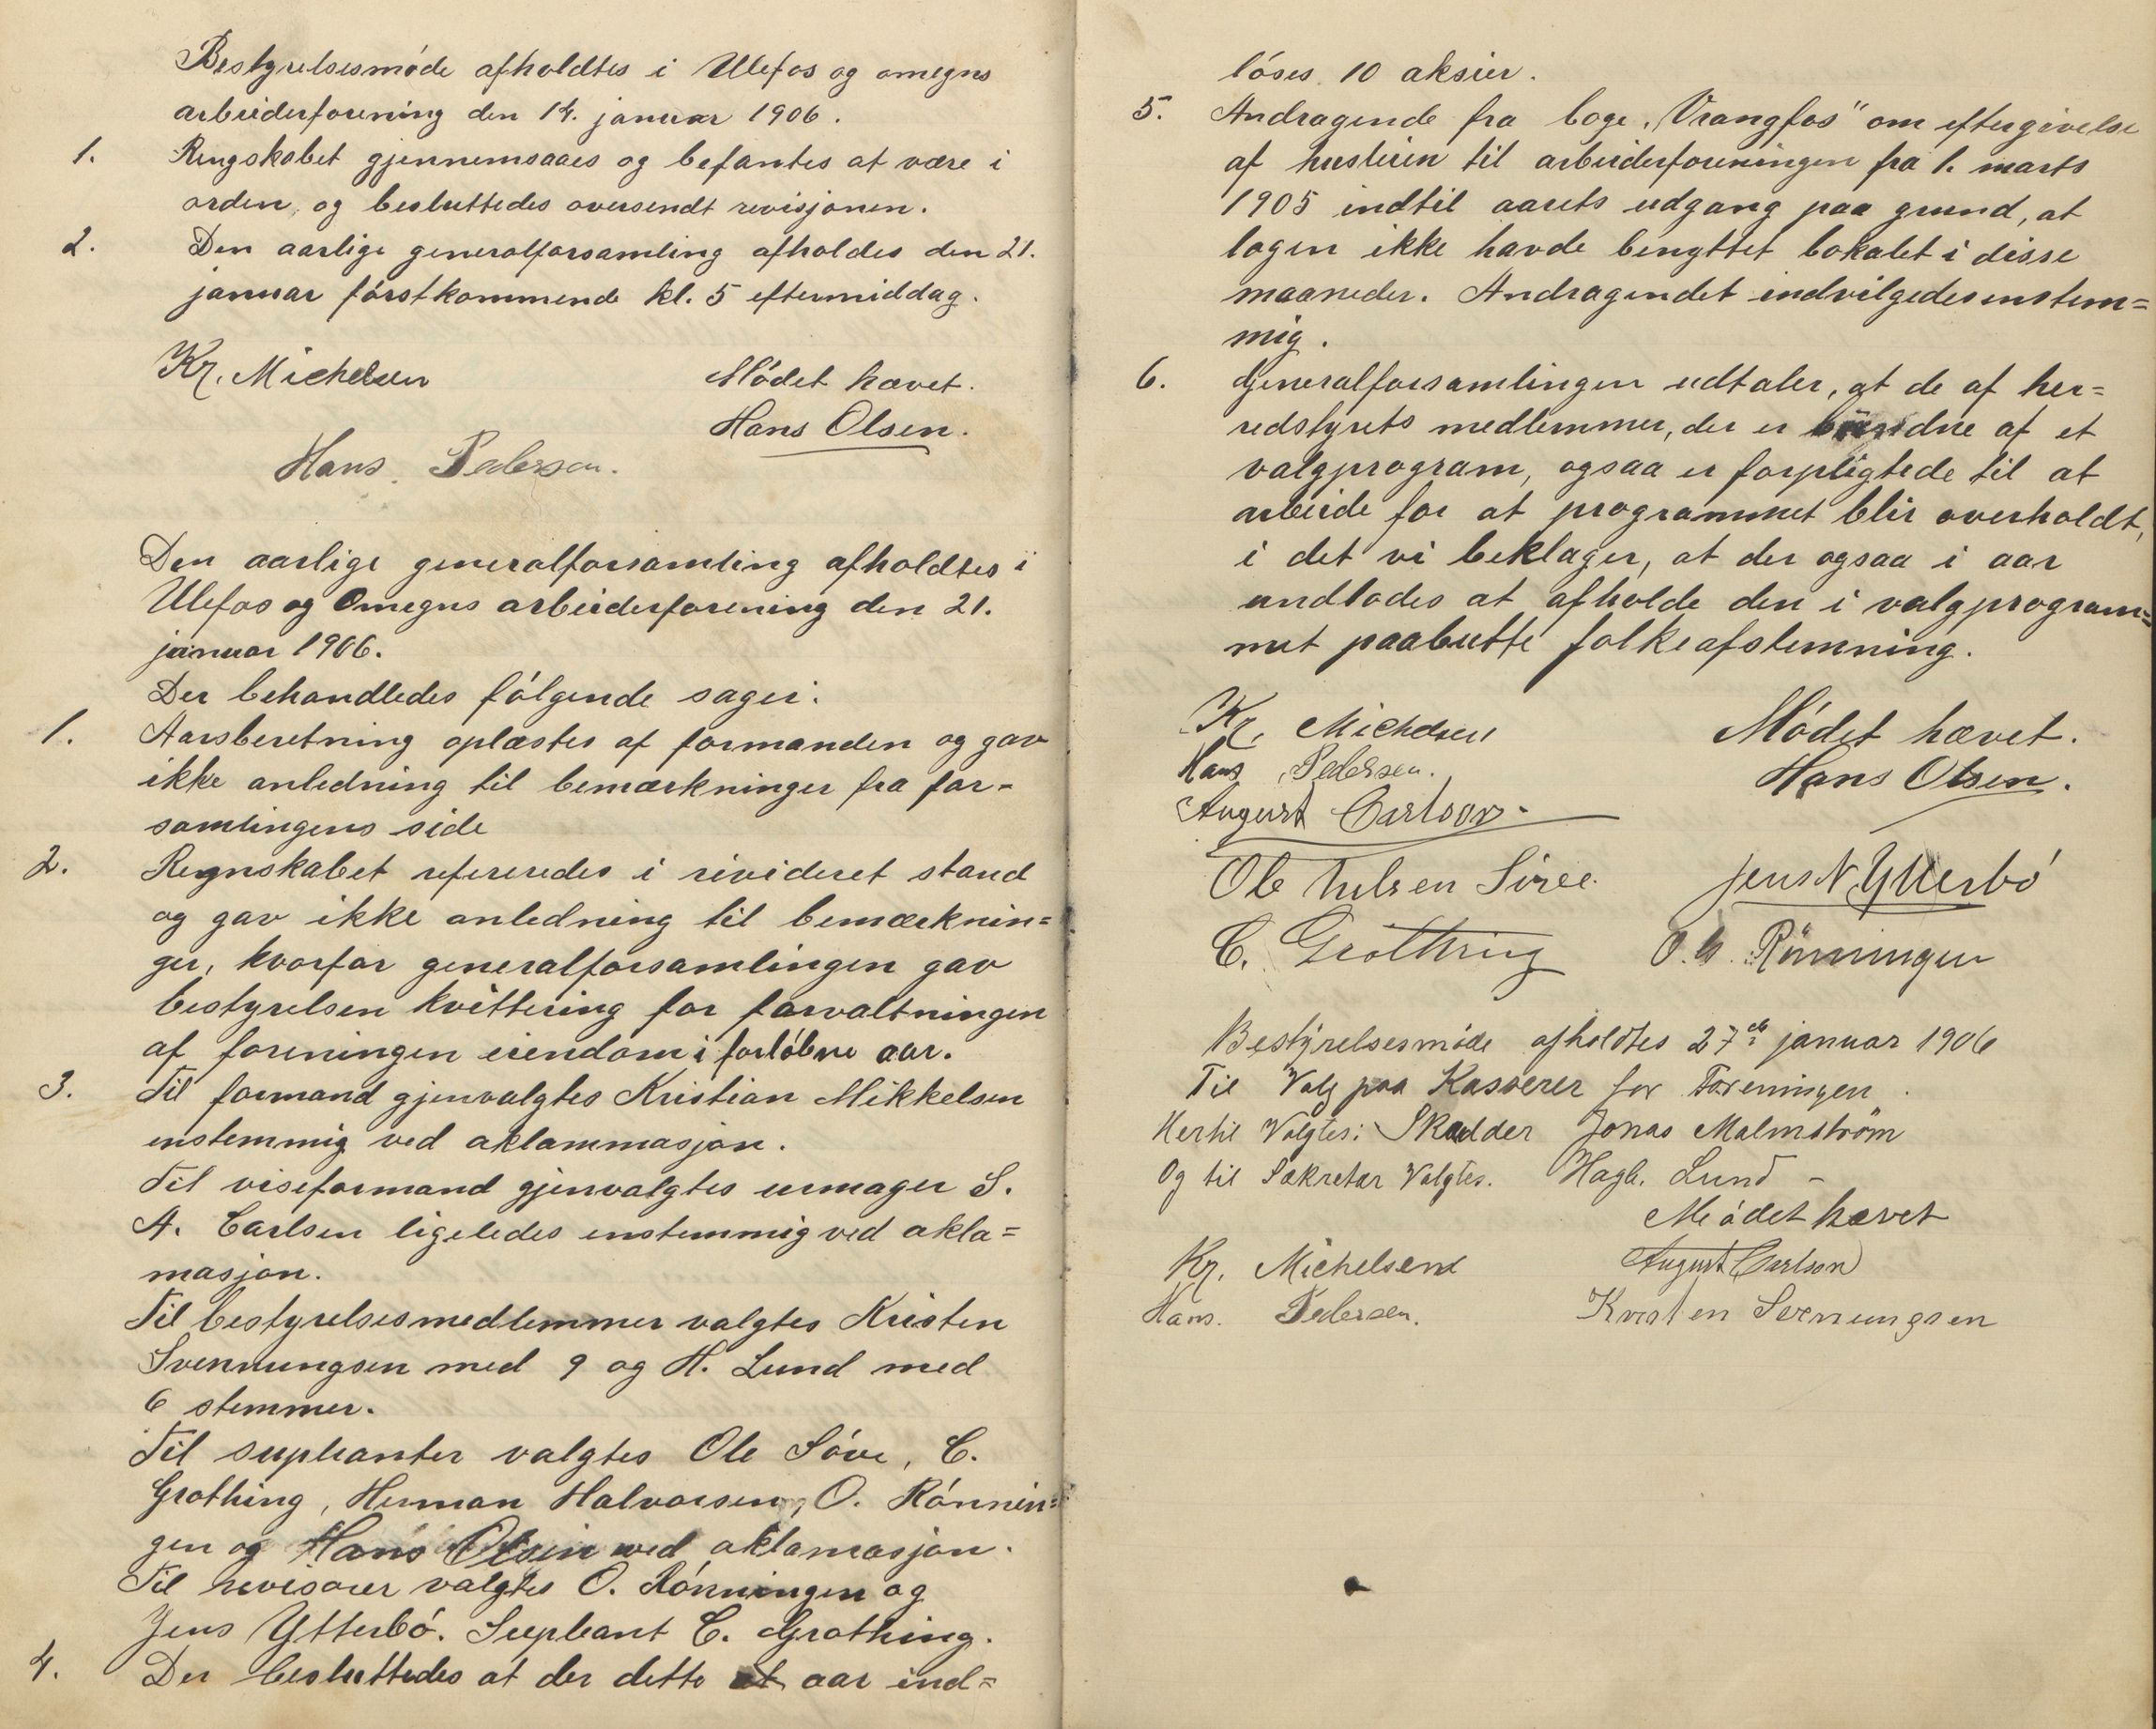 Bestyrelsesmøde afholdtes i Ulefos og omegns
arbeiderforening den 14. januar 1906.
1. Rengskabet gjennemsaaes og befantes at være i
orden, og besluttedes oversendt revisjonen.
2. Den aarlige generalforsamling afholdes den 21.
januar førstkommende kl. 5 eftermiddag.
Kr. Michelsen Mødet hævet.
Hans Olsen.
Hans Pedersen.
Den aarlige generalforsamling afholdtes i
Ulefos og Omegns arbeiderforening den 21.
januar 1906.
Der behandledes følgende sager:
1. Aarsberetning oplæstes af formanden og gav
ikke anledning til bemærkninger fra for-
samlingens side
2. Regnskabet refereredes i rivideret stand
og gav ikke anledning til bemærknin=
ger, hvorfor generalforsamlingen gav
bestyrelsen kvittering for forvaltningen
af foreningen eiendom i forløbne aar.
3. Til formand gjenvalgtes Kristian Mikkelsen
enstemmig ved aklammasjon.
Til viseformand gjenvalgtes urmager S.
A. Carlsen ligeledes enstemmig ved akla=
masjon.
Til bestyrelsesmedlemmer valgtes Kristen
Svennungsen med 9 og H. Lund med
6 stemmer.
Til supleanter valgtes Ole Søve, C.
Grothing, Herman Halvorsen, O. Rønnin=
gen og Hans Olsen ved aklamasjon.
Til revisorer valgtes O. Rønningen og
Jens Ytterbø. Supleant C. Grothing.
4. Der besluttedes at der dette aar ind=
løses 10 aksier.
5. Andragende fra loge „Vrangfos" om eftergivelse
af husleien til arbeiderforeningen fra 1. marts
1905 indtil aarets udgang paa grund, at
logen ikke havde benyttet lokalet i disse
maaneder. Andragendet indvilgedes enstem=
mig.
6. Generalforsamlingen udtaler, at de af her=
redstyrets medlemmer, der er bundne af et
valgprogram, ogsaa er forpligtede til at
arbeide for at programmet blir overholdt,
i det vi beklager, at der ogsaa i aar
undlodes at afholde den i valgprogram=
met paabudte folkeafstemning.
Kr. Michelsen Mødet hævet.
Hans Pedersen. Hans Olsen.
August Carlson.
Ole Nelsen Jens N Ytterbø
C. Grothing O. Rönningen
Bestyrelsesmøde afholdtes 27de januar 1906
Til Valg paa Kasserer for Foreningen.
Hertil Valgtes: Skrædder Jonas Malmström
Og til Sekretær Valgtes. Hagb. Lund –
Mødet hævet
Kr. Michelsen August Carlson
Hans. Pedersen. Kristen Svennungsen